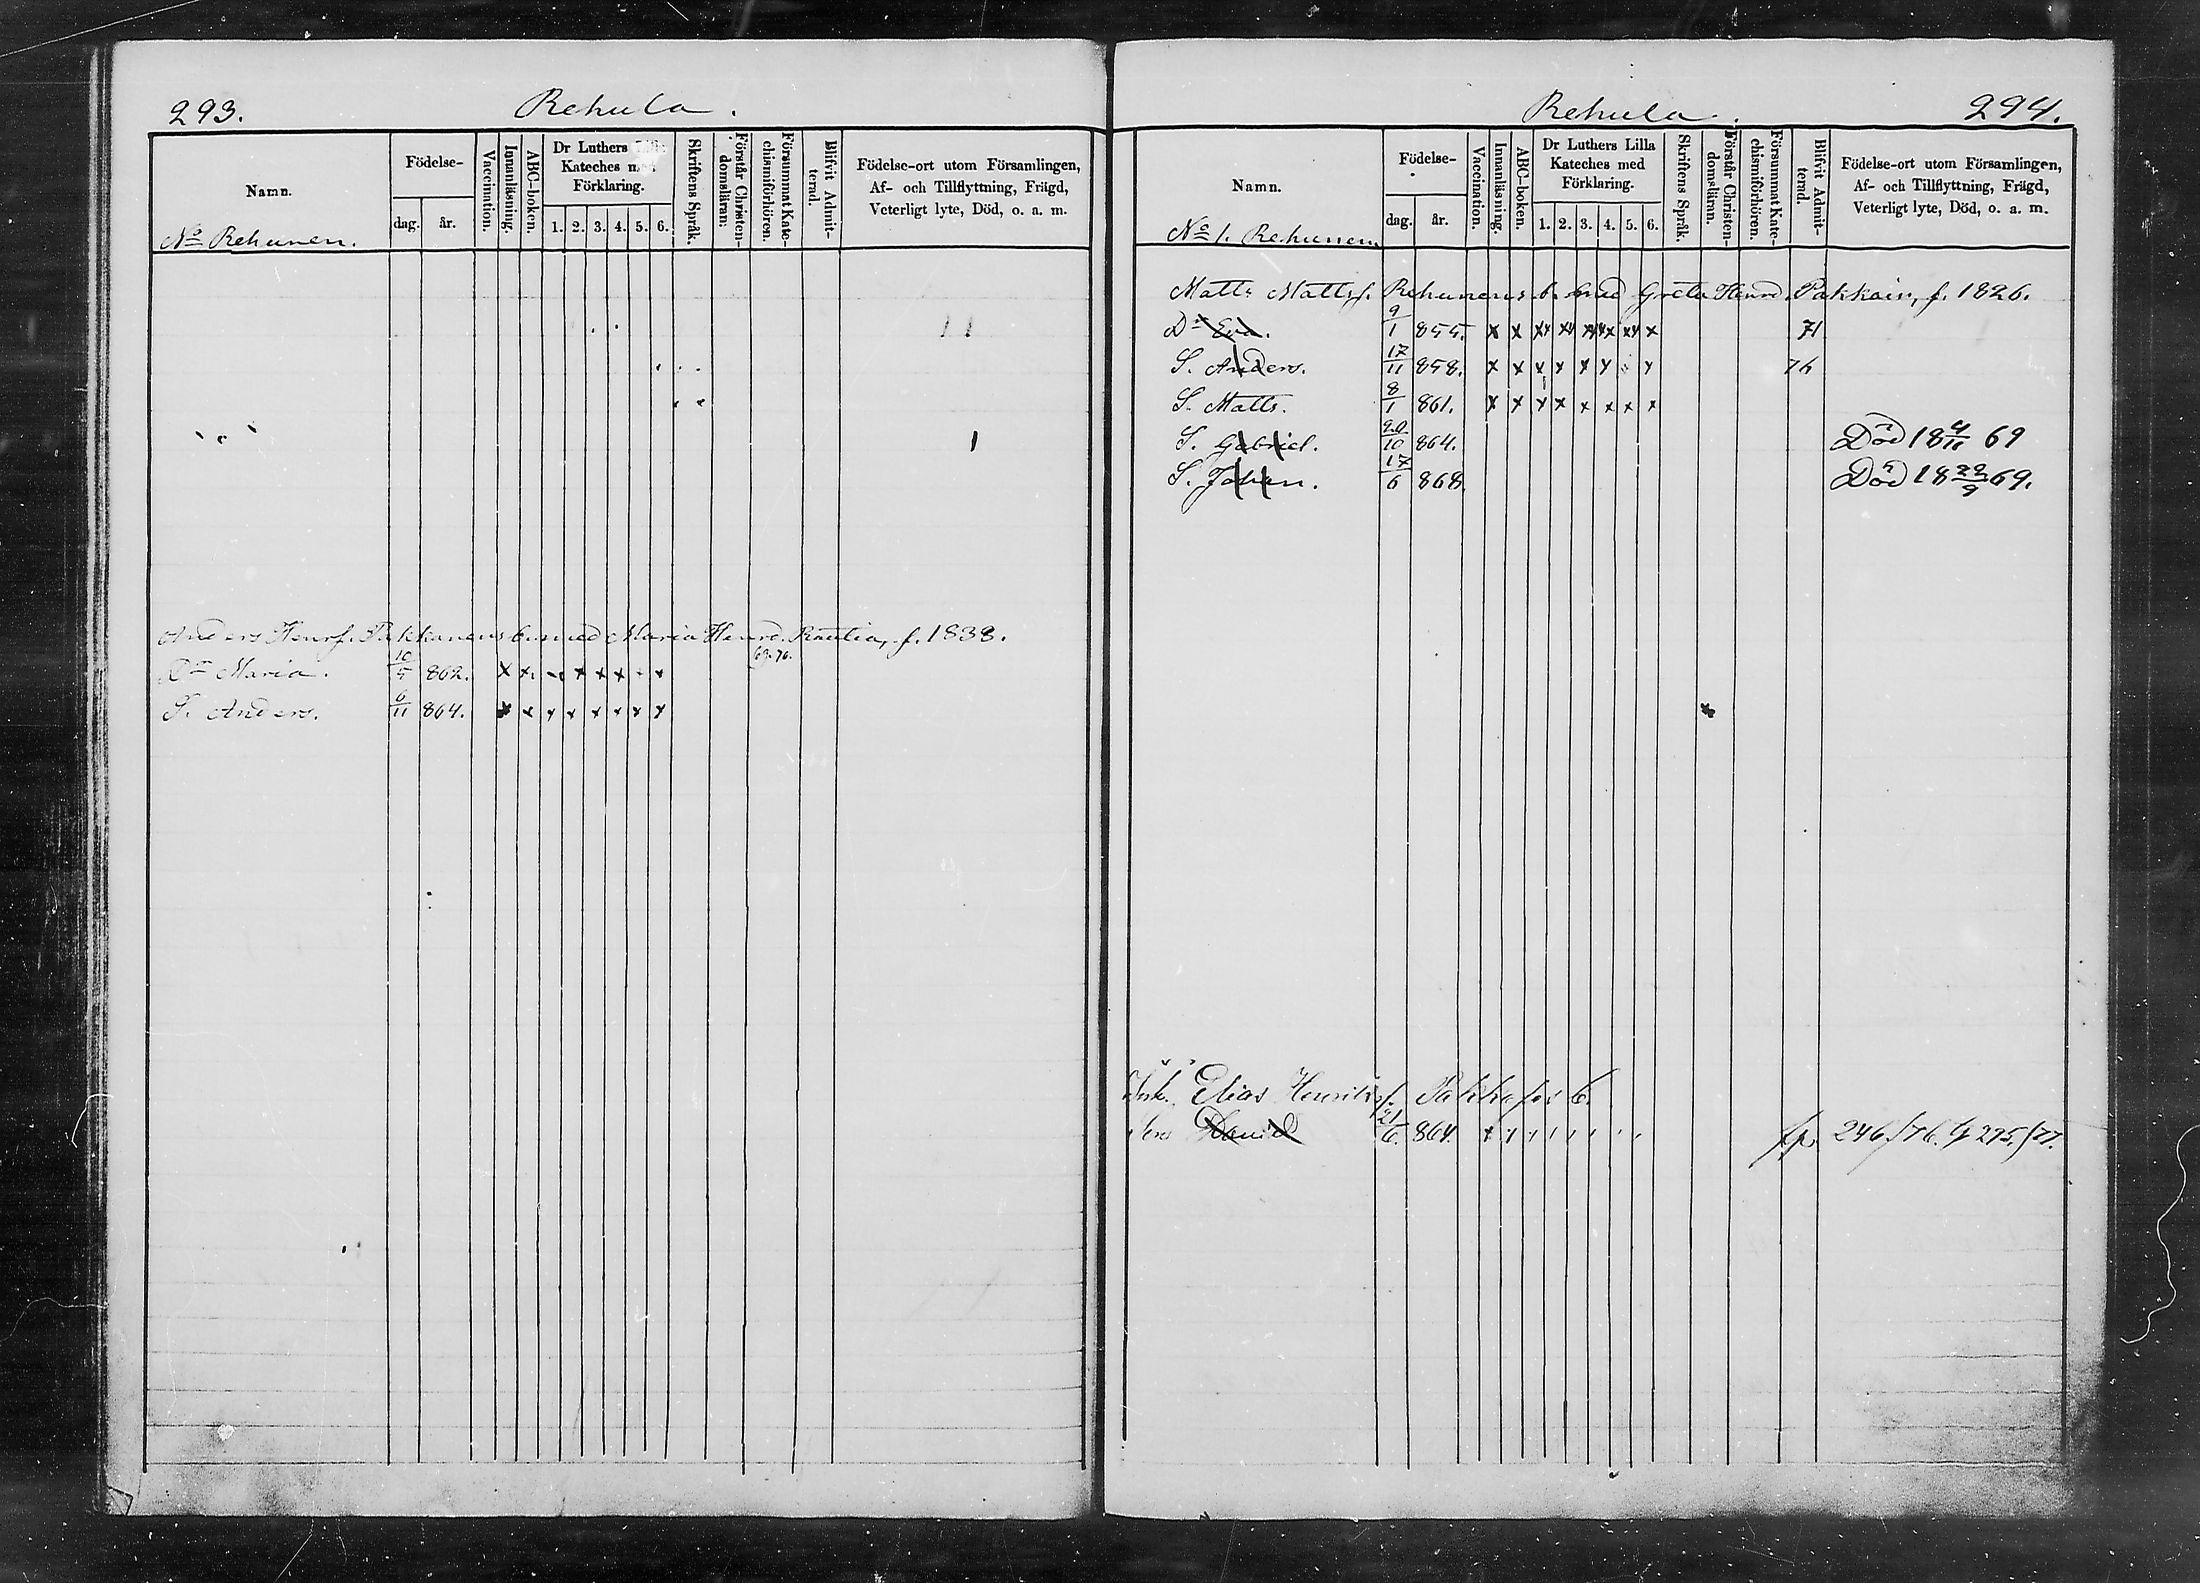 293.
Rehula.
Namn.
Födelse-
dag.
år.
Vaccination.
Innanläsning.
ABC-boken.
Dr Luthers Lilla
Kateches med
Förklaring.
1. 2. 3. 4. 5. 6.
Skriftens Språk.
Förstår Christen-
domsläran.
Försummat Kate-
chismiförhören.
Blifvit Admit-
terad.
Födelse-ort utom Församlingen,
Af- och Tillflyttning, Frägd,
Veterligt lyte, Död, o. a. m.
No Rehunen.
Anders Henrs. Pakkanens b. med Maria Henrd. Rautia, f. 1838.
Dr Maria. 10/5 862. x x x x x x x 69.70.
S. Anders. 6/11 864. x x x x x x x x
294.
Rehula.
Namn.
Födelse-
dag.
år.
Vaccination.
Innanläsning.
ABC-boken.
Dr Luthers Lilla
Kateches med
Förklaring.
1. 2. 3. 4. 5. 6.
Skriftens Språk.
Förstår Christen-
domsläran.
Försummat Kate-
chismiförhören.
Blifvit Admit-
terad.
Födelse-ort utom Församlingen,
Af- och Tillflyttning, Frägd,
Veterligt lyte, Död, o. a. m.
No 1. Rehunen
Matts Mattsf. Rehunens b. med Greta Henrd. Pakkain, f. 1826.
Dr Eva. 9/1 855. x x x x x x x x 71
S. Anders. 17/11 858. x x x x x x x 76
S. Matts. 8/1 861. x x x x x x x x
S. Gabriel. 20/10 864. Död 18 4/11 69
S. Johan. 17/6 868. Död 18 22/9 69.
Elias Henriksf. b.
Son Daniel 21/6 864. 246/76. 295/77.